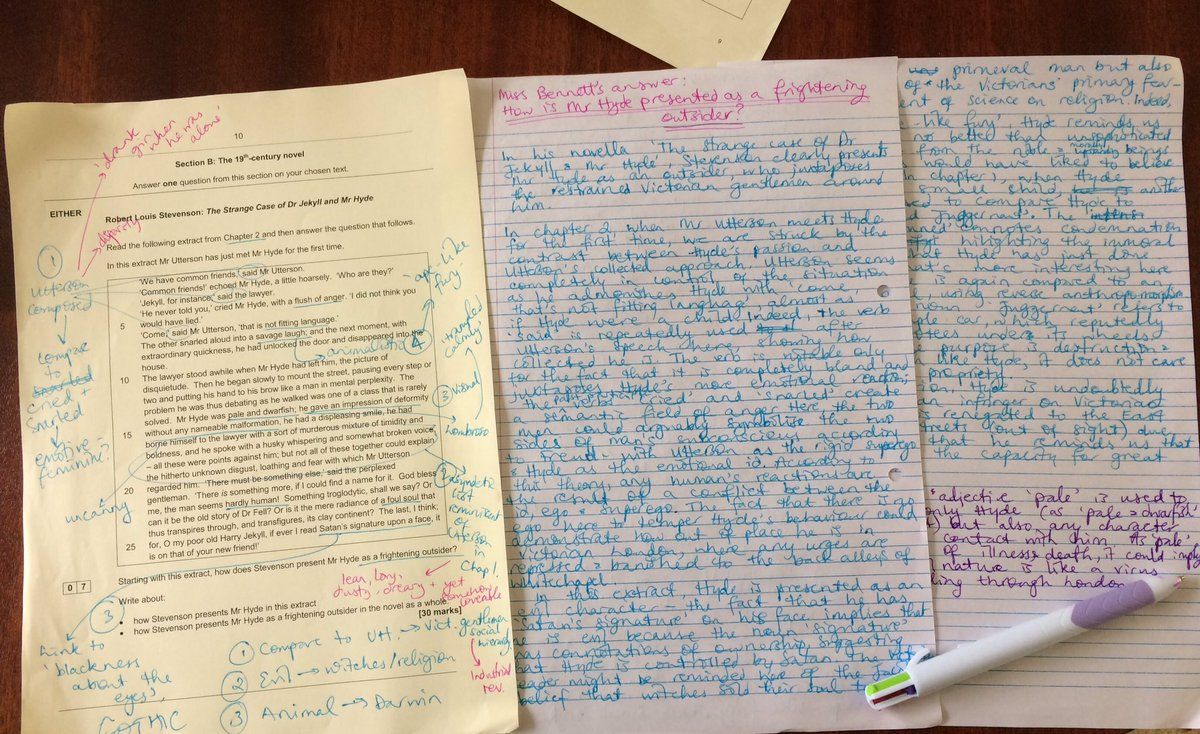 9
10
Section B: The 19th-century novel
Answer one question from this section on your chosen text.
EITHER
Robert Louis Stevenson: The Strange Case of Dr Jekyll and Mr Hyde
Read the following extract from Chapter 2 and then answer the question that follows.
In this extract Mr Utterson has just met Mr Hyde for the first time.
'We have common friends,' said Mr Utterson.
'Common friends!' echoed Mr Hyde, a little hoarsely. 'Who are they?'
'Jekyll, for instance,' said the lawyer.
'He never told you,' cried Mr Hyde, with a flush of anger. 'I did not think you
5 would have lied.'
'Come,' said Mr Utterson, 'that is not fitting language.'
The other snarled aloud into a savage laugh; and the next moment, with
extraordinary quickness, he had unlocked the door and disappeared into the
house.
10 The lawyer stood awhile when Mr Hyde had left him, the picture of
disquietude. Then he began slowly to mount the street, pausing every step or
two and putting his hand to his brow like a man in mental perplexity. The
problem he was thus debating as he walked was one of a class that is rarely
solved. Mr Hyde was pale and dwarfish; he gave an impression of deformity
15 without any nameable malformation, he had a displeasing smile, he had
borne himself to the lawyer with a sort of murderous mixture of timidity and
boldness, and he spoke with a husky whispering and somewhat broken voice;
– all these were points against him; but not all of these together could explain
the hitherto unknown disgust, loathing and fear with which Mr Utterson
20 regarded him. 'There must be something else,' said the perplexed
gentleman. 'There is something more, if I could find a name for it. God bless
me, the man seems hardly human! Something troglodytic, shall we say? Or
can it be the old story of Dr Fell? Or is it the mere radiance of a foul soul that
thus transpires through, and transfigures, its clay continent? The last, I think;
25 for, O my poor old Harry Jekyll, if ever I read Satan's signature upon a face, it
is on that of your new friend!'
0 7
Starting with this extract, how does Stevenson present Mr Hyde as a frightening outsider?
Write about:
• how Stevenson presents Mr Hyde in this extract
• how Stevenson presents Mr Hyde as a frightening outsider in the novel as a whole.
[30 marks]
'drank
gin when
he was
alone'
disparity
①
Utterson
composed
compare
to
cried +
snarled
emotive
feminine?
uncanny
animalistic
④
ape-like
fury
'trampled
calmly'
③
Lombroso
②
asyndetic
list
reminiscent
of
Utterson
in
Chap 1.
lean, long,
dusty, dreary + yet
somehow
loveable
③
Link to
'blackness
about the
eyes'
GOTHIC
① Compare to Utt. → Vict. gentlemen
social
hierarchy
Industrial
rev.
② Evil → witches/religion
③ Animal → Darwin
Miss Bennett's answer:
How is Mr Hyde presented as a frightening
outsider?
In his novella 'The strange case of Dr
Jekyll & Mr Hyde', Stevenson clearly presents
Mr Hyde as an outsider, who juxtaposes
the restrained Victorian gentlemen around
him.
In chapter 2, when Mr Utterson meets Hyde
for the first time, we are struck by the
contrast between Hyde's passion and
Utterson's collected approach. Utterson seems
completely in control of the situation
as he admonishes Hyde with 'come,
that's not fitting language' almost as
if Hyde were a child. Indeed, the verb
'said' is repeatedly used after
Utterson's speech here, showing how
collected he is. The verb is notable only
for the fact that it is completely bland and
juxtaposes Hyde's more emotional reaction;
the 'cried' and 'snarled' create
a semantic field of anger. Here, the two
men could arguably symbolise the two
sides of man's unconscious, according
to Freud - with Utterson as the rigid superego
& Hyde as the emotional id. According to
this theory any human's reactions are
the result of a conflict between the
id, ego & superego. The fact that there is no
ego here to temper Hyde's behaviour could
demonstrate how out of place he is in
Victorian London where any urges are
repressed & banished to the back alleys of
Whitechapel.
In this extract, Hyde is presented as an
evil character - the fact that he has
'Satan's signature' on his face implies that
he is evil because the noun 'signature'
has connotations of ownership, suggesting
that Hyde is controlled by Satan. The
reader might be reminded here of the
belief that witches sold their soul to
primeval man but also
of the Victorians' primary fear-
ent of science on religion. Indeed,
like fury', Hyde reminds us
no better than unsophisticated
from the noble & morally beings
would have liked to believe
in chapter 1, when Hyde
small child, another
ed to compare Hyde to
d Juggernaut'. The
condemnation
hilighting the immoral
that Hyde has just done
hat's more interesting here
is again compared to an
using reverse anthropomorphism.
noun 'Juggernaut' refers to
ple car, which reputedly
tees under its wheels.
purpose is destruction &
like Hyde, it does not care
propriety.
ion Hyde is undoubtedly
an infringer on Victorian
is renegated to the East
treets (out of sight) due
that he reminds us that
the capacity for great
adjective 'pale' is used to
only Hyde (as 'pale & dwarfish'
) but also any character
contact with him. As 'pale'
of illness & death, it could imply
nature is like a virus
ling through London